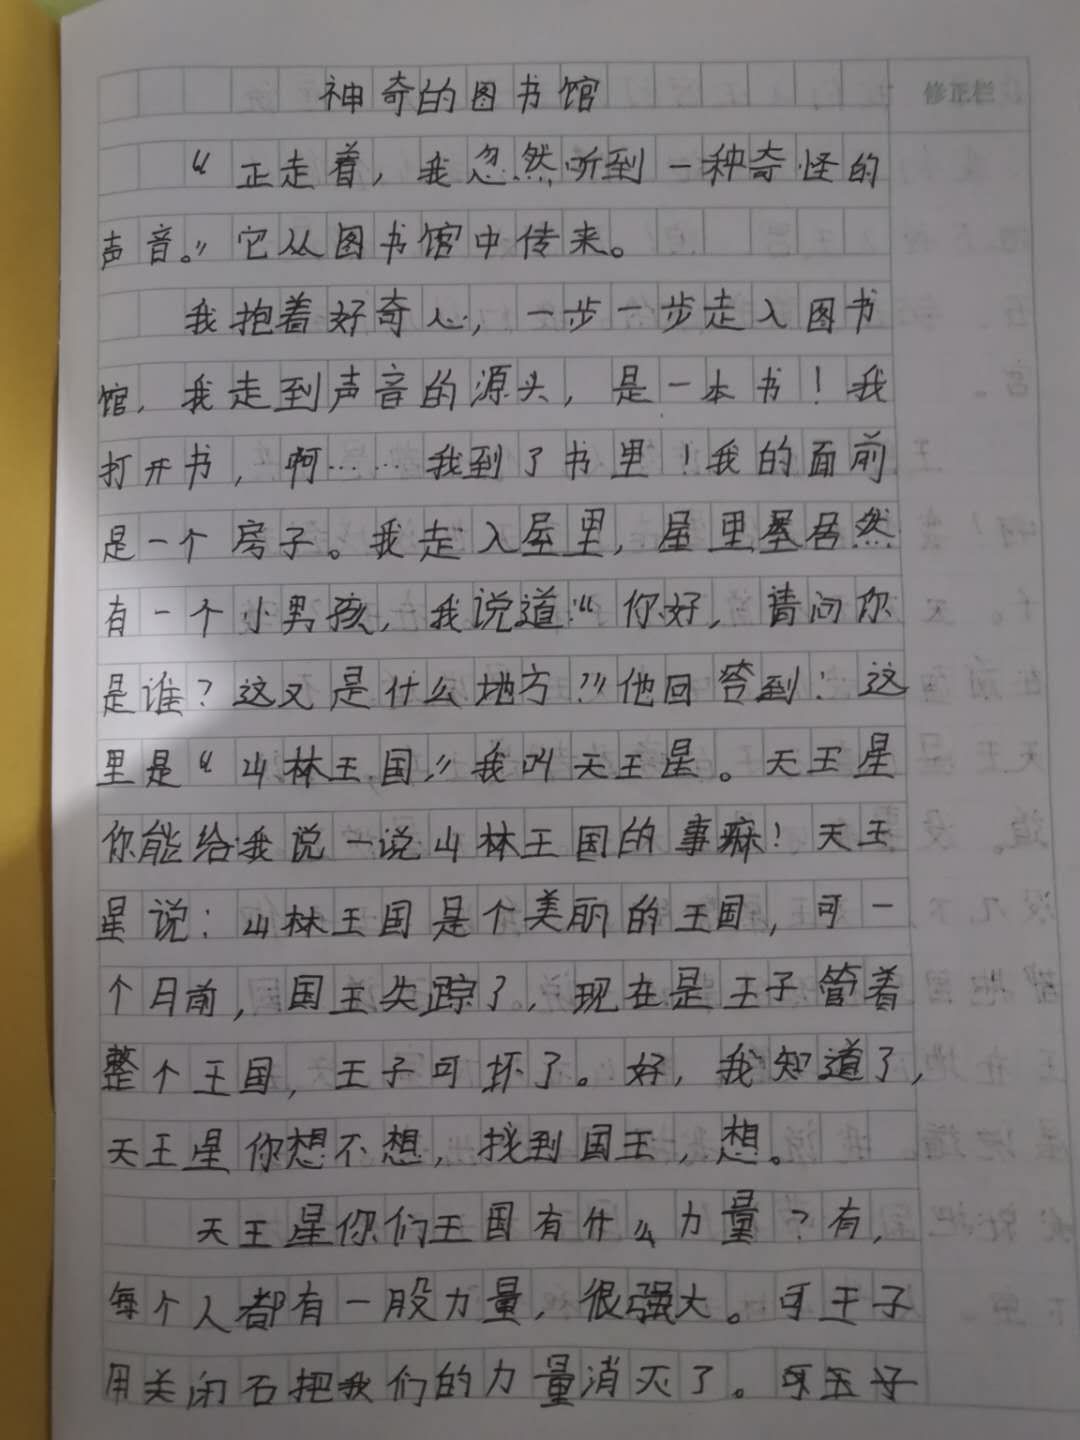 神奇的图书馆
修正栏
“正走着，我忽然听到一种奇怪的
声音。”它从图书馆中传来。
我抱着好奇心，一步一步走入图书
馆，我走到声音的源头，是一本书！我
打开书，啊……我到了书里！我的面前
是一个房子。我走入屋里，屋里居然
有一个小男孩，我说道：“你好，请问你
是谁？这又是什么地方？”他回答到：这
里是“山林王国”我叫天王星。天王星
你能给我说一说山林王国的事嘛！天王
星说：山林王国是个美丽的王国，可一
个月前，国王失踪了，现在是王子管着
整个王国，王子可坏了。好，我知道了，
天王星你想不想，找到国王，想。
天王星你们王国有什么力量？有，
每个人都有一股力量，很强大。可王子
用关闭石把我们的力量消灭了。